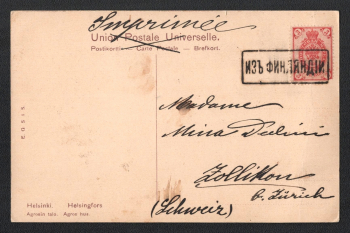 Imprimée
Union Postale Universelle.
Postikortti — Carte Postale — Brefkort.
ИЗЪ ФИНЛЯНДIИ
Madame
Mina
Zollikon
b. Zürich
(Schweiz)
Helsinki. Helsingfors